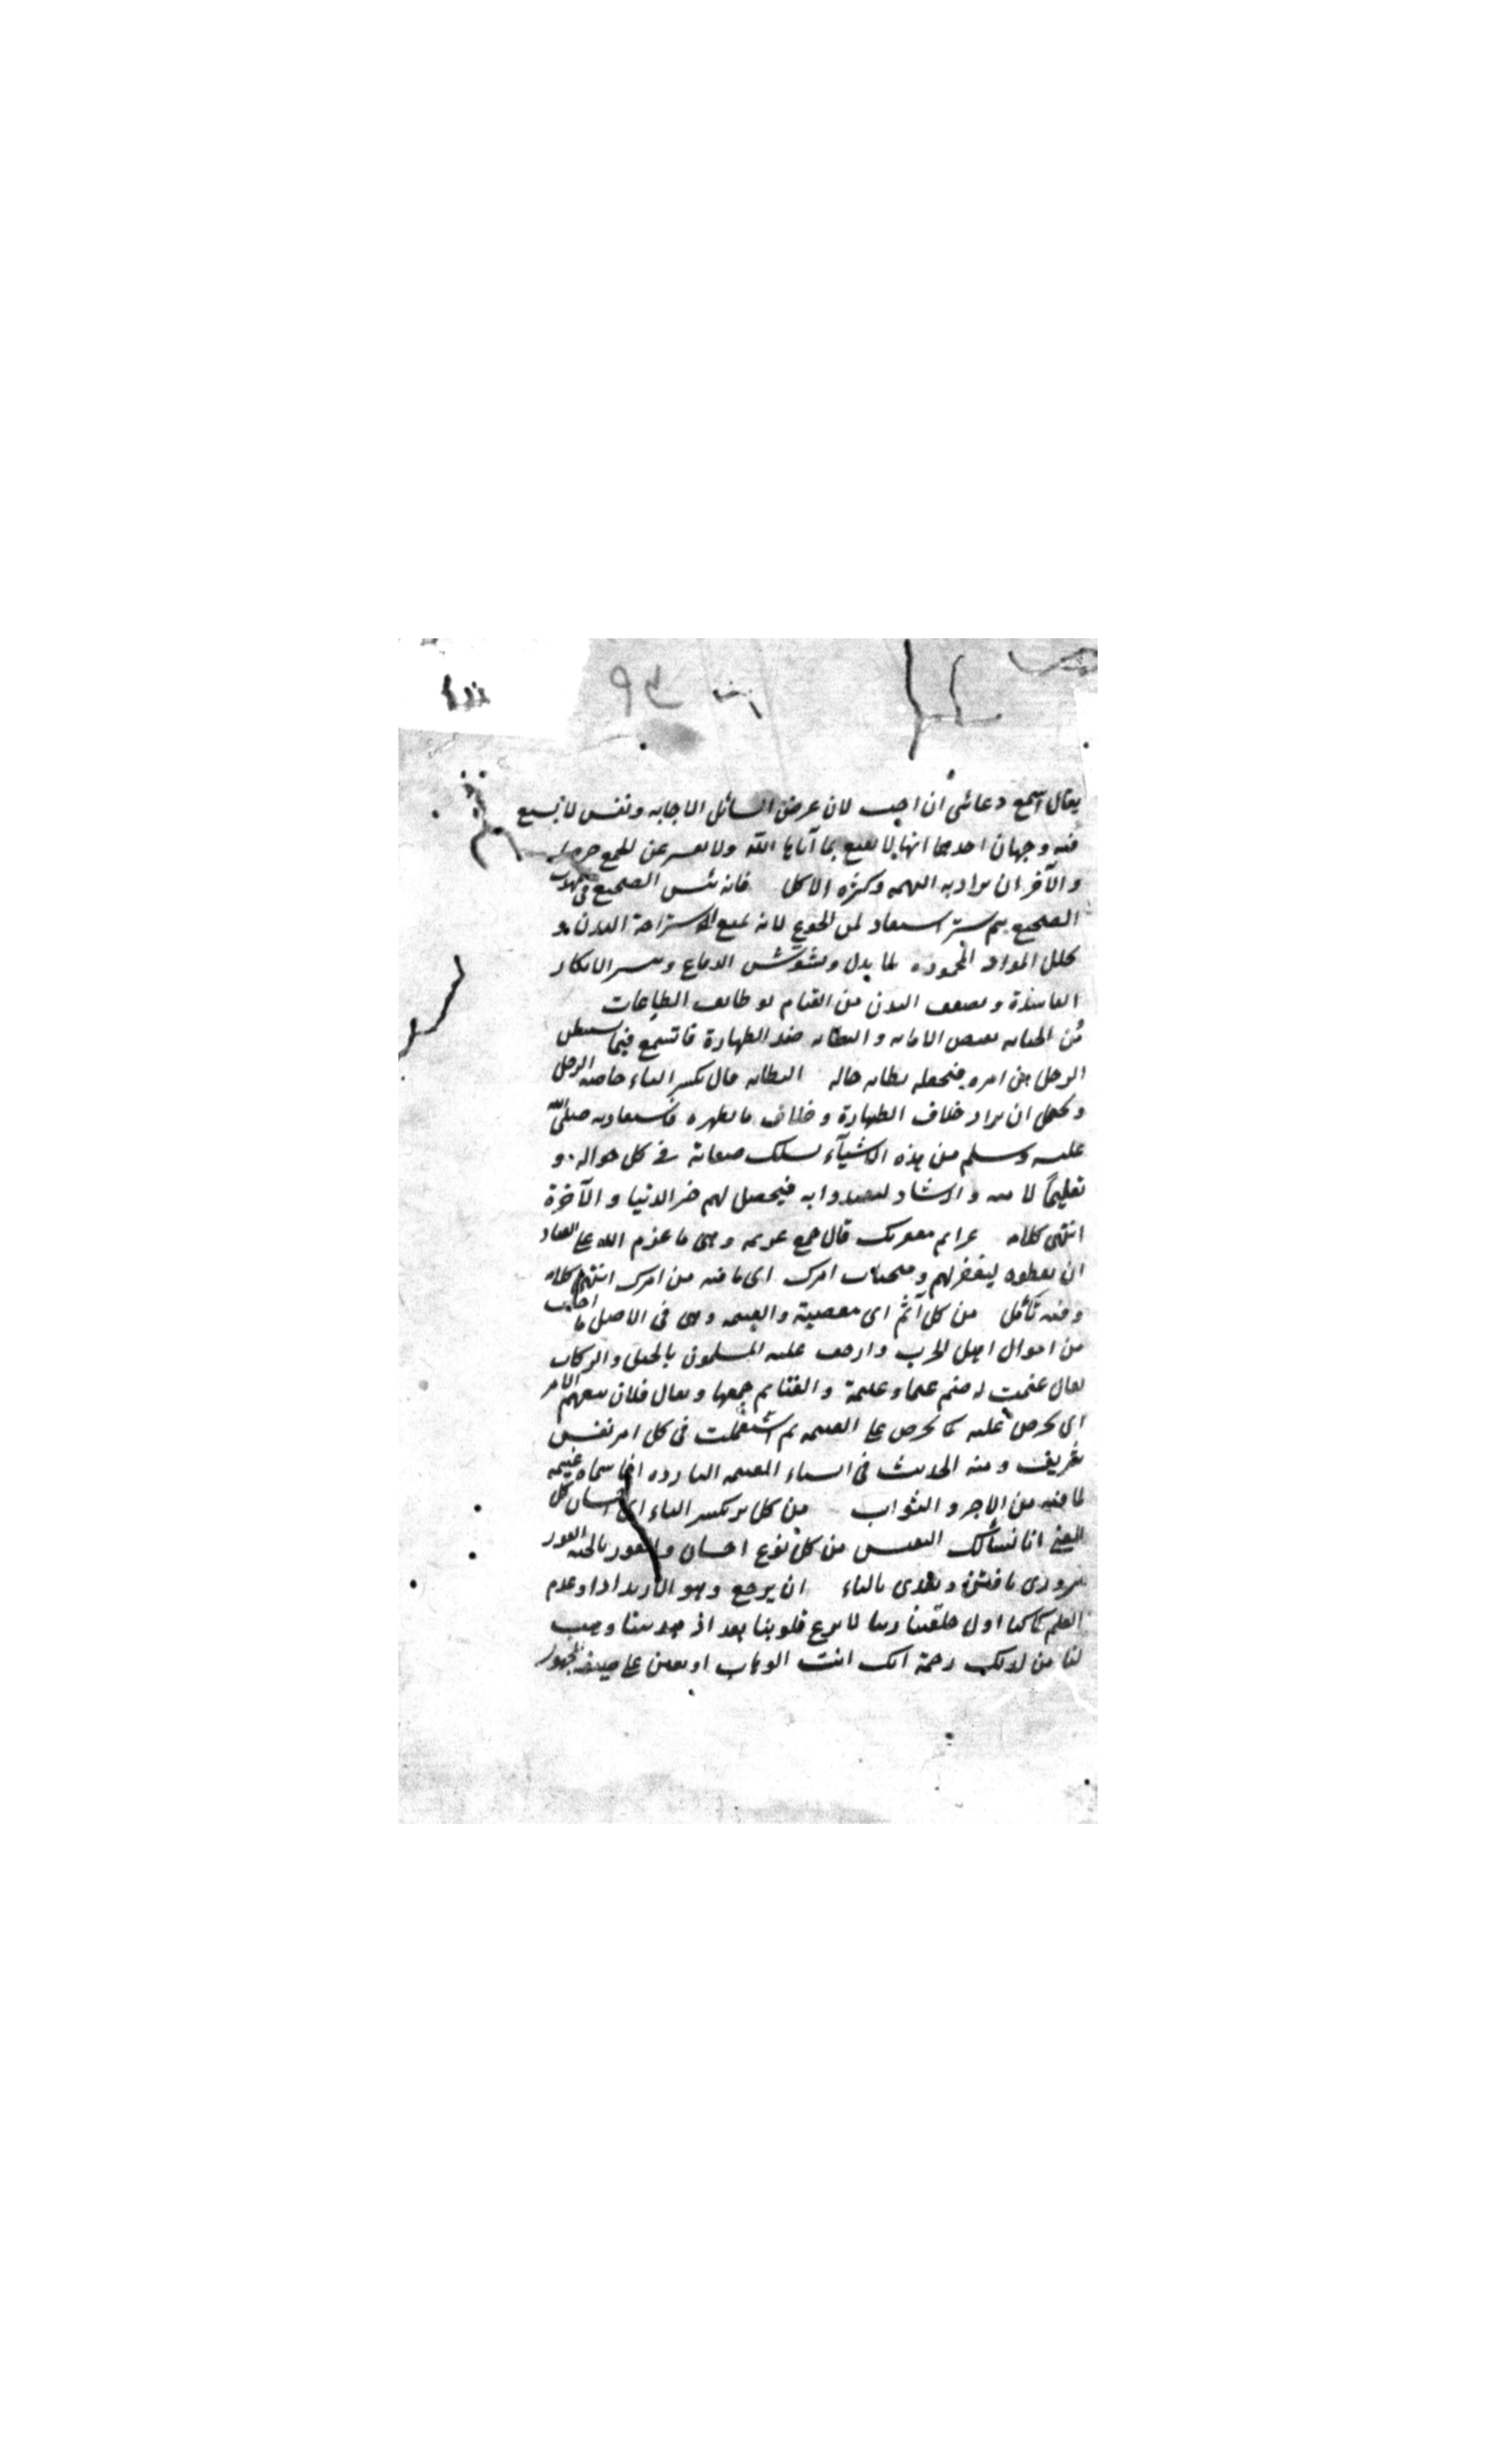 ٩٣
يقال اسمع دعائي ان اجب لان غرض السائل الاجابه ونفس لا تشبع
فيه وجهان احدهما انها لا تقنع بما آتاها الله ولا تفتر عن الجمع حرصا
والآخر ان يراد به النهمه وكثرة الاكل فانه بئس الضجيع في
الضجيع استعاذ من الجوع لانه يمنع استراحة البدن و
يحلل المواد المحمودة بلا بدل ويشوش الدماغ ويثير الافكار
الفاسدة ويضعف البدن من القيام بوظائف الطاعات
من الخيانه نقيض الامانه والبطانه ضد الظهارة فاتسع فيما يستبطن
الرجل من امره فيجعله بطانه حاله البطانه قال بكسر الباء خاصة الرجل
ويحتمل ان يراد خلاف الظهارة وخلاف ما يظهره فاستعاذ به صلى الله
عليه وسلم من هذه الاشيآء في كل حواله و
تعليماً لامته وارشاد ليقتدوا به فيحصل لهم خير الدنيا والآخرة
انتهى كلامه عزايم مغفرتك قال جمع عزيمه وهي ما عزم الله على العباد
ان يعطوه ليغفر لهم ومنجيات امرك اى ما فيه من امرك انتهى كلامه
وفيه تأمل من كل آثم اى معصية والغنيمه وهى فى الاصل ما اصاب
من اموال اهل الحرب واوجف عليه المسلمون بالخيل والركاب
يقال غنمت له غنم غنما وغنيمة والغنايم جمعها ويقال فلان يتغنم الامر
اى يحرص عليه كما يحرص على الغنيمه ثم استعملت فى كل امر نفيس
شريف ومنه الحديث فى الشتاء الغنيمه البارده انما سماه غنيمه
لما فيه من الاجر والثواب من كل بر بكسر الباء اى احسان كل
المعنى انا نسألك النفيس من كل نوع احسان والفوز بالجنه الفوز
ويتعدى بالباء ان يرجع وهو الارتداد او عدم
العلم كما كنا اول خلقتنا ربنا لا تزغ قلوبنا بعد اذ هديتنا وهب
لنا من لدنك رحمة انك انت الوهاب او نفتن على صيغة المجهول